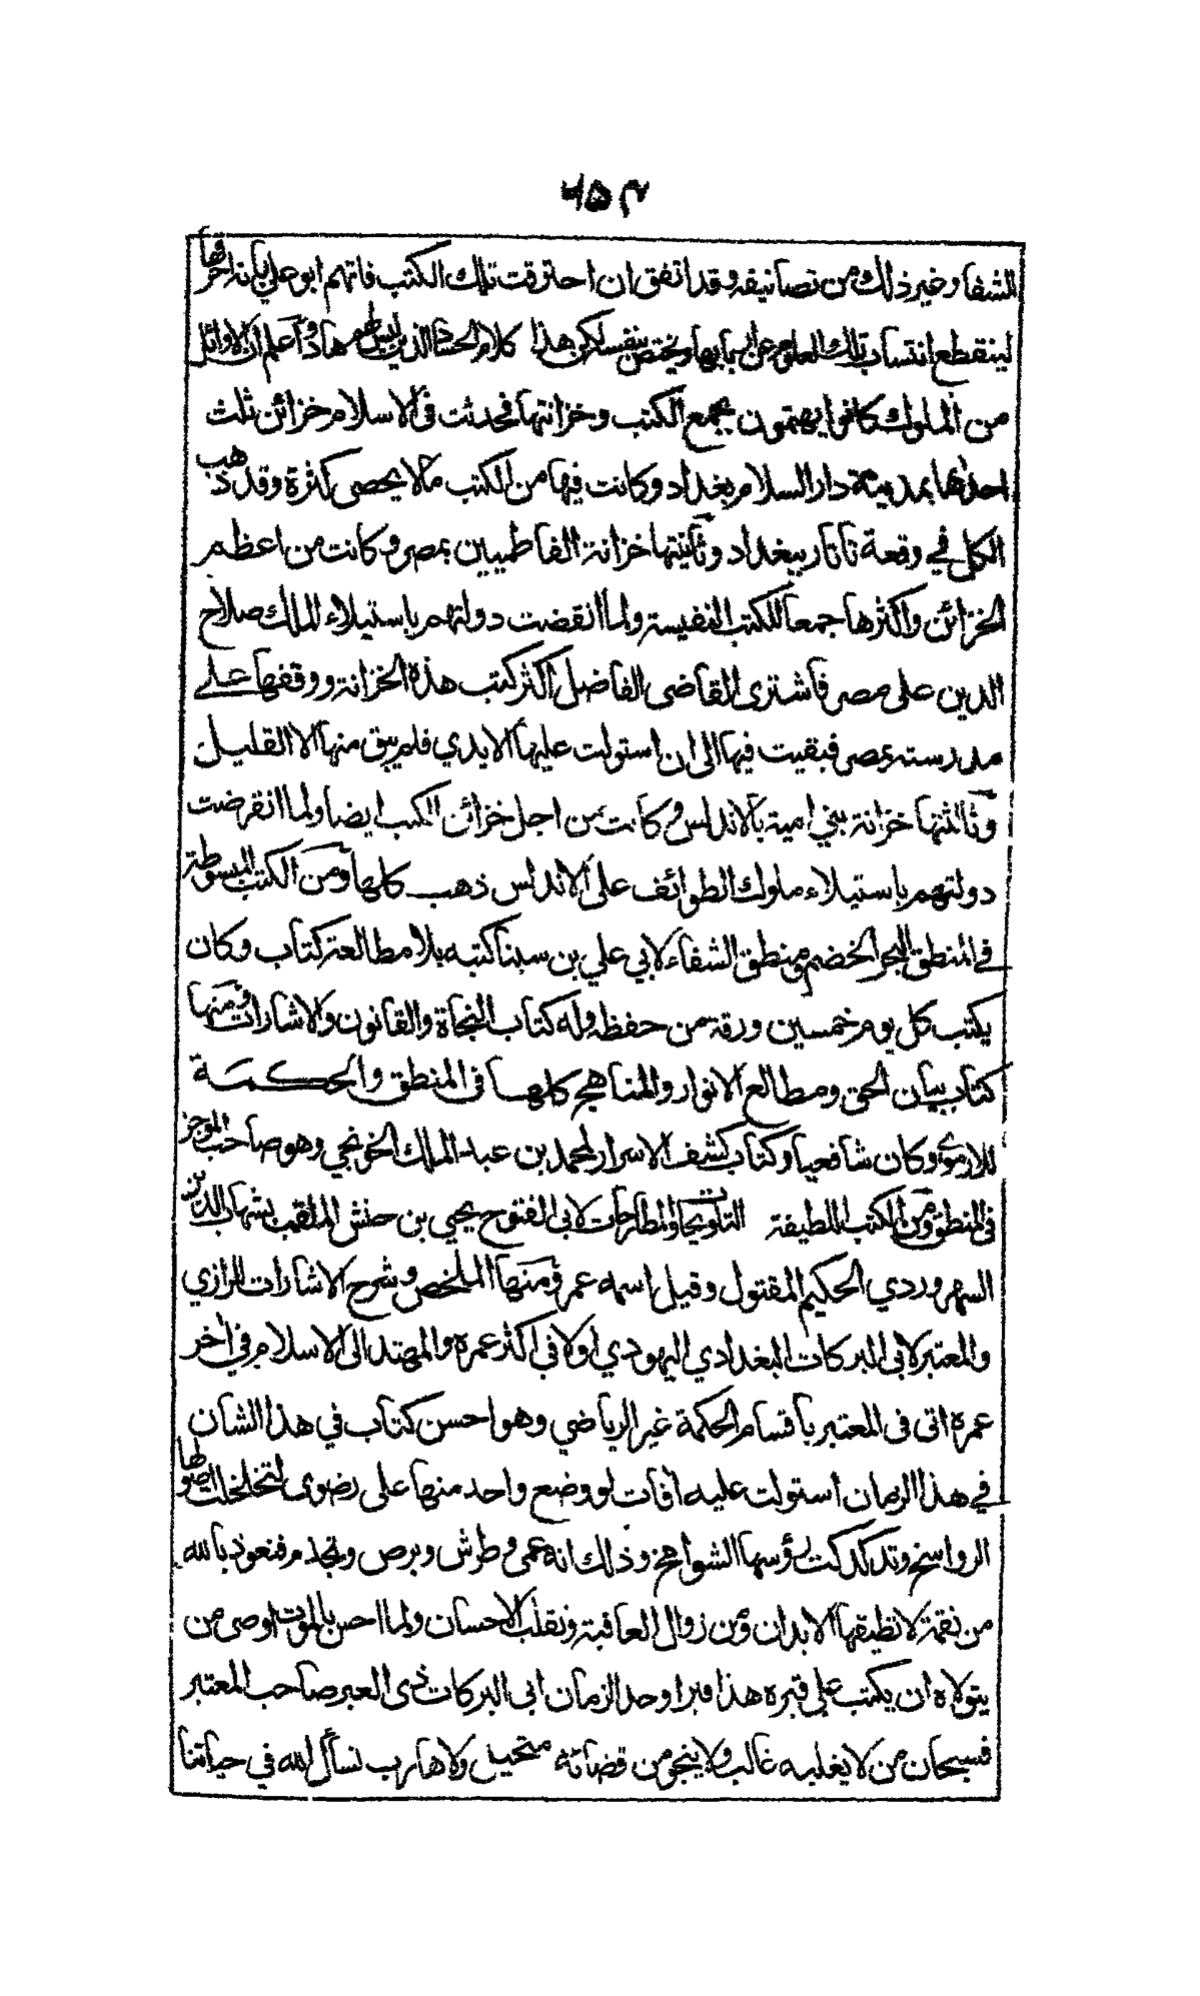 ۶۵۳
للشفا وغير ذلك من تصانيفه وقد اتفق ان احترقت تلك الكتب فاتهم ابو علي بأنه احرقها
لينقطع انتساب تلك العلوم عن اربابها ويختص بنفسه لكن هذا كلام الحساد الذين ليس لهم هاد واعلم ان الاوائل
من الملوك كانوا يهتمون بجمع الكتب وخزانتها فحدثت في الاسلام خزائن ثلث
احدها بمدينة دار السلام بغداد وكانت فيها من الكتب ما لا يحصى كثرة وقد ذهب
الكل في وقعة تاتار ببغداد وثانيتها خزانة الفاطميين بمصر وكانت من اعظم
الخزائن واكثرها جمعا للكتب النفيسة ولما انقضت دولتهم باستيلاء الملك صلاح
الدين على مصر فاشترى القاضى الفاضل اكثر كتب هذه الخزانة ووقفها على
مدرسته بمصر فبقيت فيها الى ان استولت عليها الايدي فلم يبق منها الا القليل
وثالثتها خزانة بني امية بالاندلس وكانت من اجل خزائن الكتب ايضا ولما انقرضت
دولتهم باستيلاء ملوك الطوائف على الاندلس ذهب كلها ومن الكتب المبسوطة
في المنطق البحر الخضم ومنطق الشفاء لابي علي بن سينا كتبه بلا مطالعة كتاب وكان
يكتب كل يوم خمسين ورقة من حفظه وله كتاب النجاة والقانون والاشارات ومنها
كتاب بيان الحق ومطالع الانوار والمناهج كلها في المنطق والحكمة
للارموي وكان شافعيا وكتاب كشف الاسرار لمحمد بن عبد الملك الخونجي وهو صاحب الموجز
في المنطق ومن الكتب اللطيفة التلويحات والمطارحات لابى الفتوح يحيي بن حنش الملقب بشهاب الدين
السهروردي الحكيم المقتول وقيل اسمه عمر ومنها الملخص وشرح الاشارات للرازي
والمعتبر لابى البركات البغدادي اليهودي اولا في اكثر عمره والمهتد الى الاسلام في اخر
عمره اتى فى المعتبر بأقسام الحكمة غير الرياضي وهو احسن كتاب في هذا الشان
في هذا الزمان استولت عليه افات لو وضع واحد منها على رضوى لتخلخلت اصولها
الرواسخ وتدكدكت رؤسها الشوامخ وذلك انه عمى وطرش وبرص وتجذم فنعوذ بالله
من نقمة لا تطيقها الابدان ومن زوال العافية وتقلب الاحسان ولما احس بالموت اوصى من
يتولاه ان يكتب على قبره هذا قبر اوحد الزمان ابى البركات ذى العبر صاحب المعتبر
فسبحان من لا يغلبه غالب ولا ينجو من قضائه متحيل ولا هارب نسأل الله في حياتنا